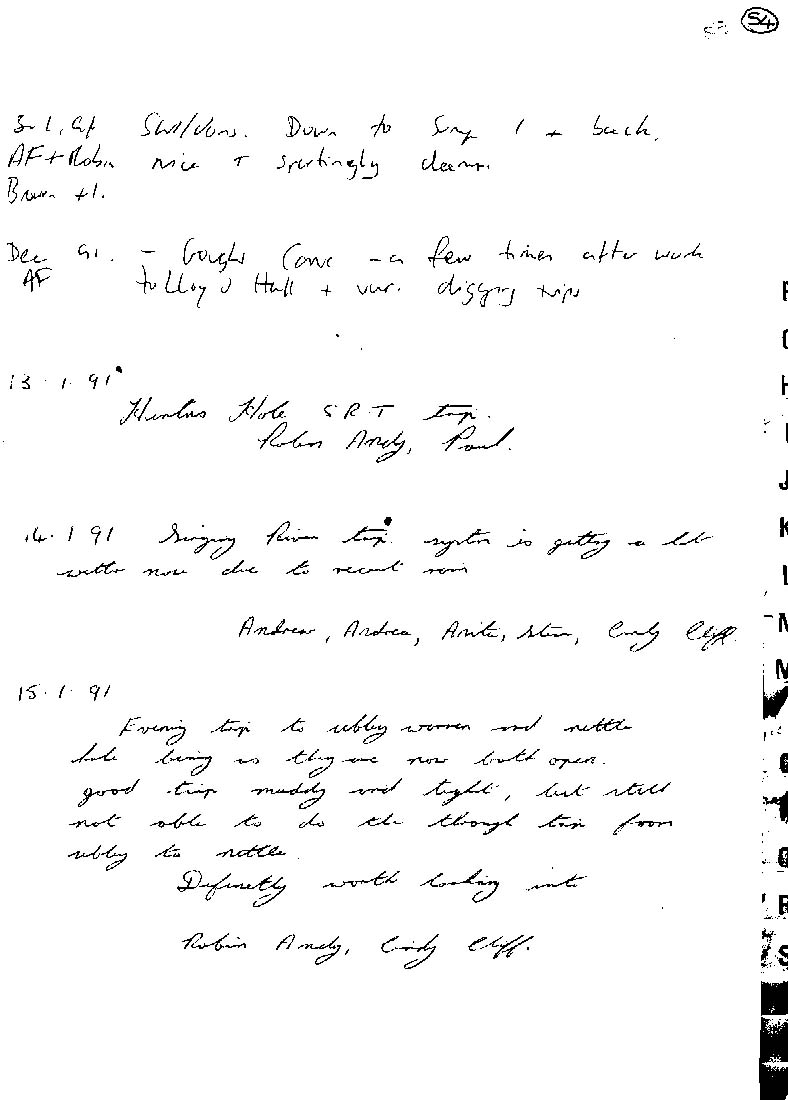 54
3.1.91 Swildons. Down to Sump 1 + back.
AF + Robin nice + sportingly
Brown +1.
Dec 91. - Goughs Cave - a few times after work
AF to Lloyd Hall + var. digging trips
13.1.91
Hunters Hole SRT trip.
Robin Andy, Paul.
14.1.91 Singing River trip system is getting a lot
wetter now due to recent rain
Andrew, Andrea, Anita, Steve, Cindy Cliff.
15.1.91
Evening trip to ubbley warren and nettle
hole being as they are now both open.
good trip muddy and tight, but still
not able to do the though trip from
ubbley to nettle.
Definetly worth looking into
Robin Andy, Cindy Cliff.
F
G
H
I
J
K
L
M